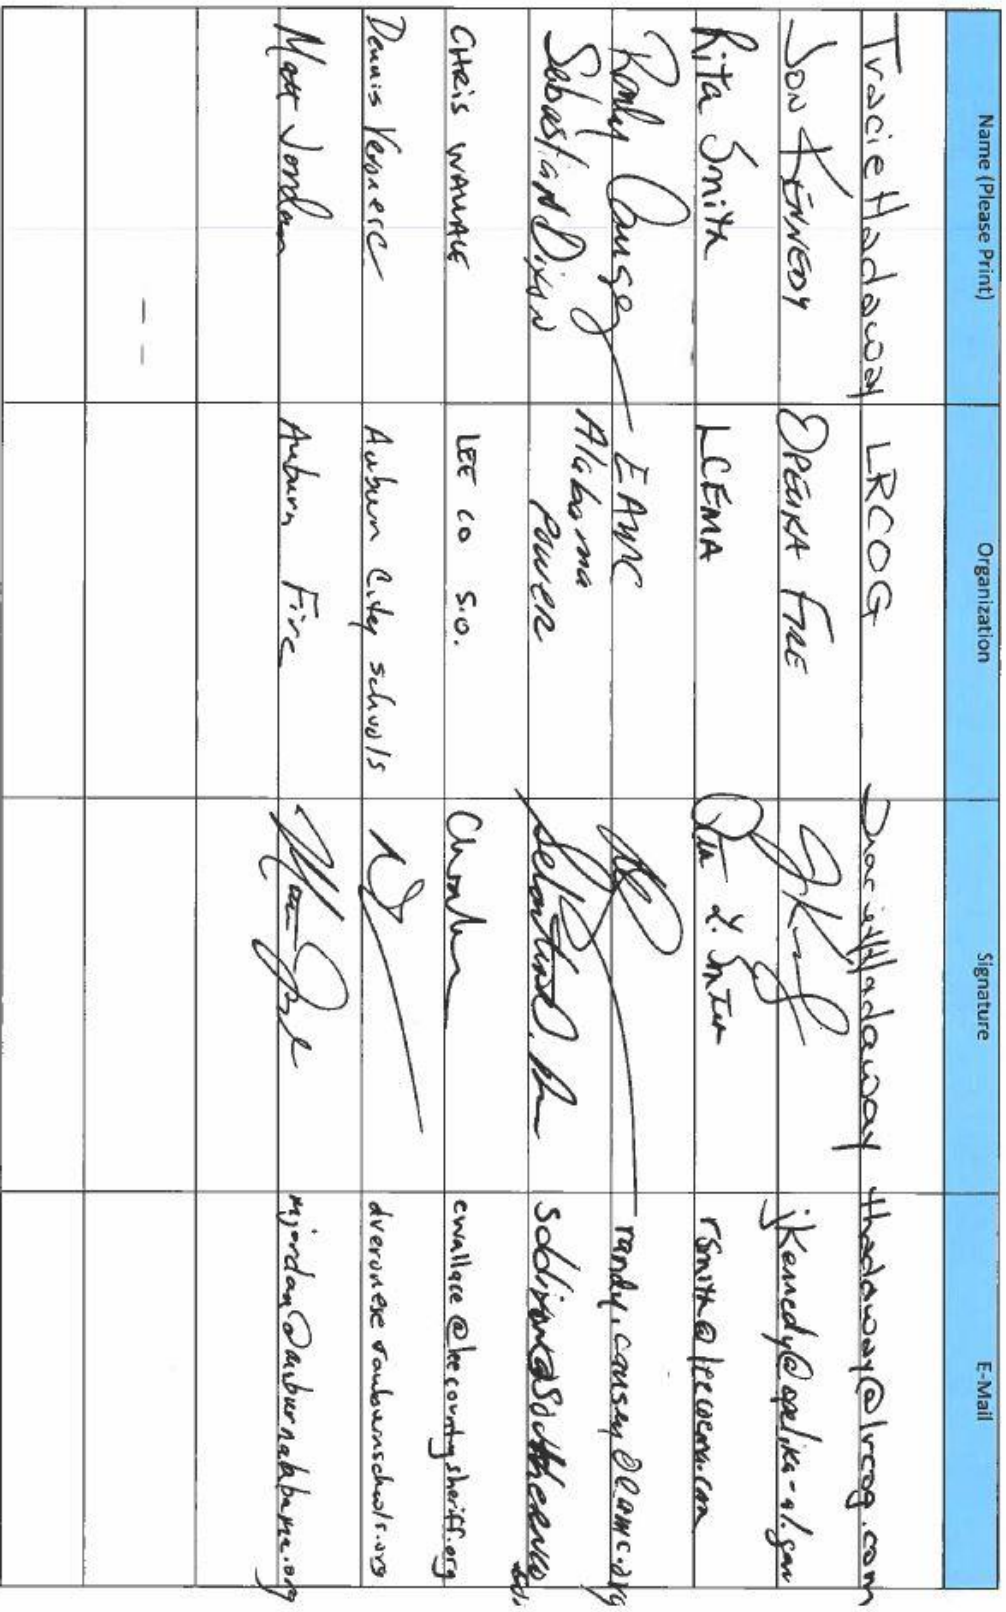 Name (Please Print) Organization Signature E-Mail
Tracie Hadaway LRCOG Tracie Hadaway thadaway@lrcog.com
Jon Kennedy Opelika Fire jkennedy@opelika-al.gov
Rita Smith LCEMA Rita L. Smith rsmith@leecoema.com
Randy Causey EAMC randy.causey@eamc.org
Sebastian Dixon Alabama Power
CHRIS WALLACE LEE CO S.O. cwallace@leecountysheriff.org
Dennis Veronese Auburn City schools dveronese@auburnschools.org
Matt Jordan Auburn Fire mjordan@auburnalabama.org